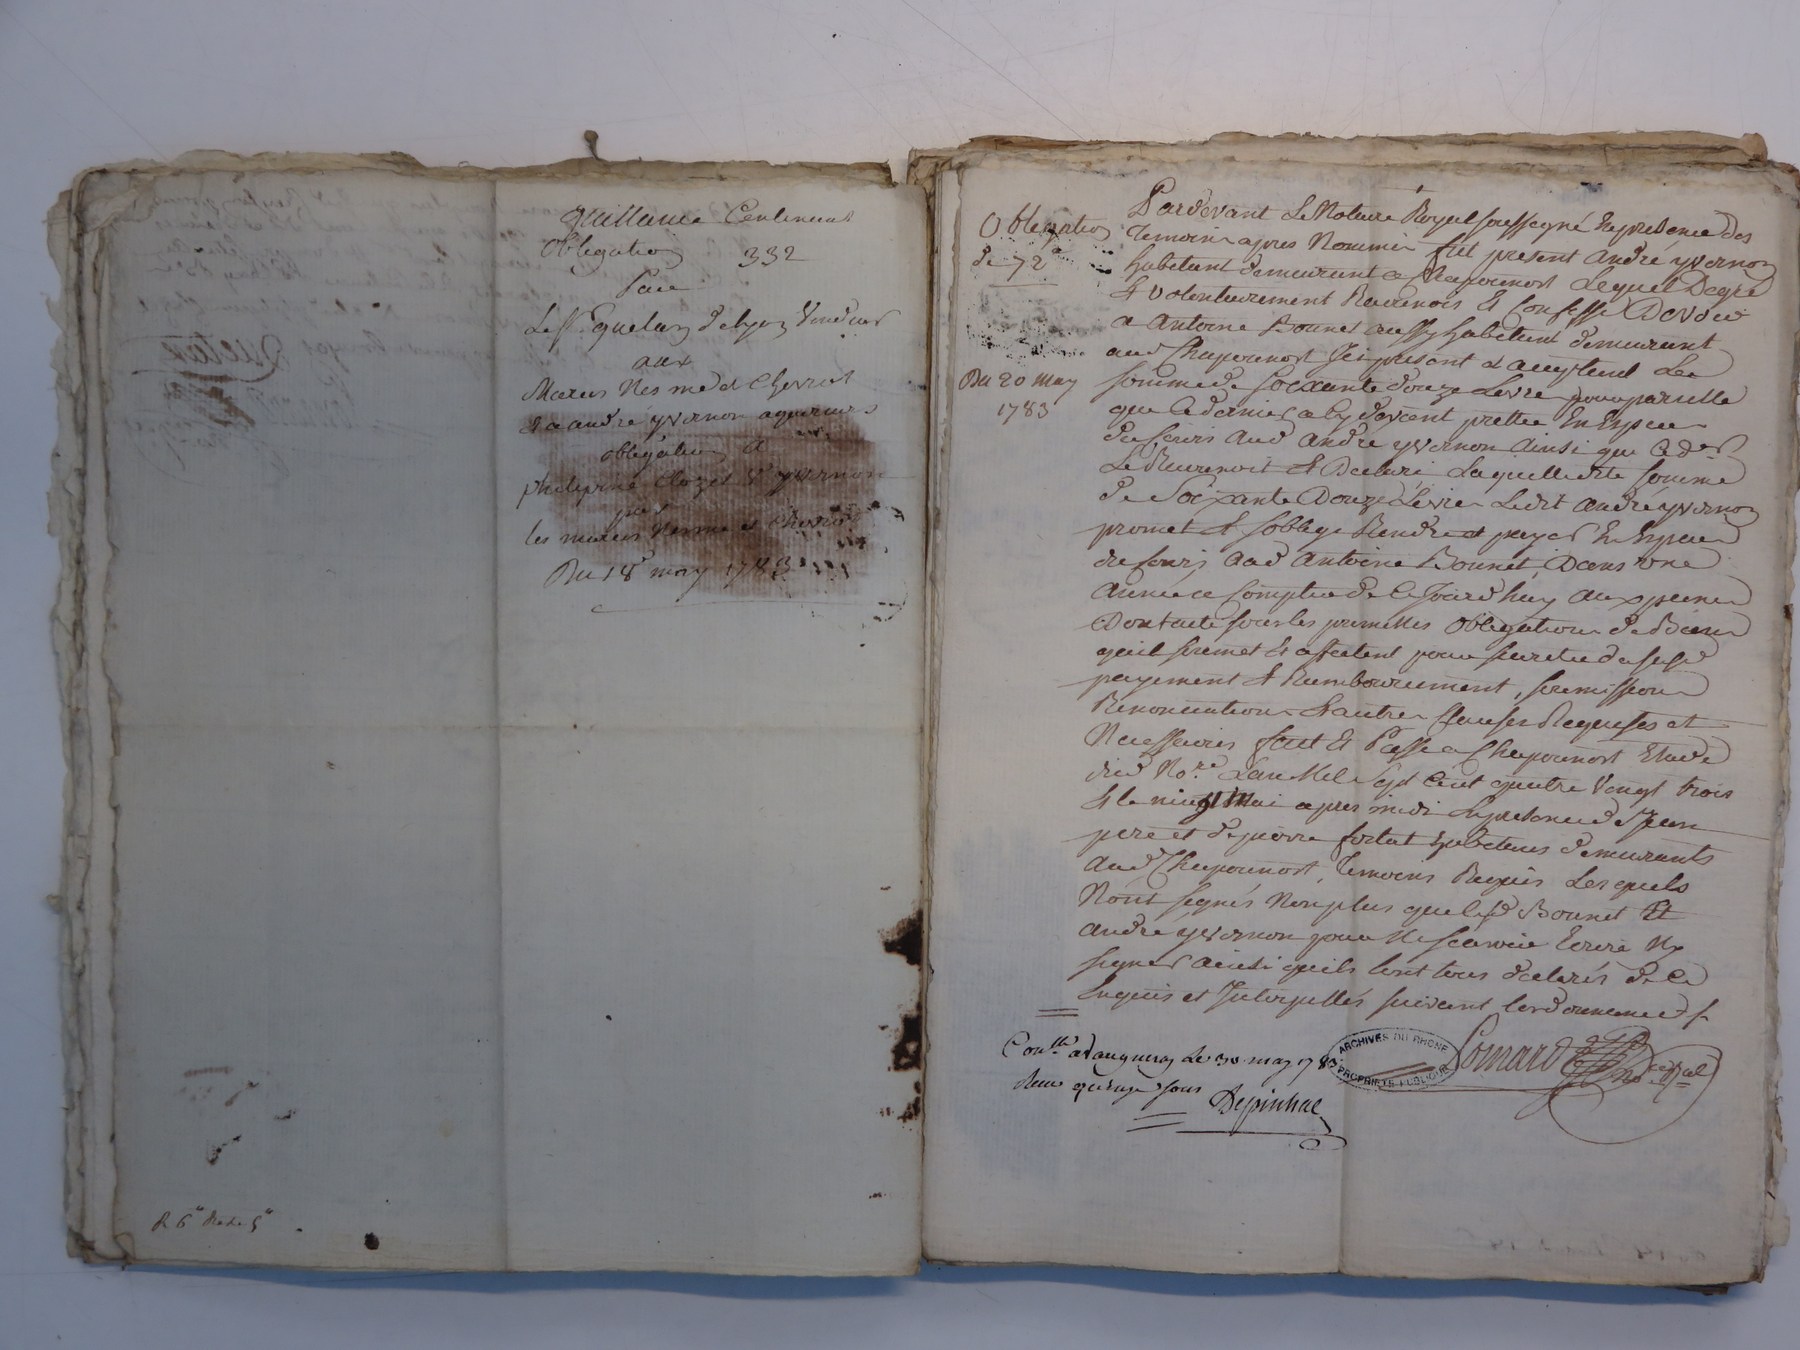 quittance Contenant
obligation 332
Par
Le Sr quetan de lyon Vendeur
aux
Maries Nesme et Cherrat
et a andré yvernon aquereurs
obligation a
philipine Clozet Ve yvernon
par
les mariés Nesme et
Du 18e may 1783
R 6ll
Obligation
de 72ll
Du 20 may
1783
Pardevant Le Notaire Royal soussigné En presence des
Temoins apres Nommés fut present andré yvernon
habitant demeurant a Chaponost Lequel De gré
Et volontairement Reconnois Et Confesse Devoir
a Antoine Bonnet aussy habitant demeurant
aud Chaponost Icy present et aceptant La
somme de soixante douze Livres pour pareille
que Ce dernier a Cy devant prettée En Especes
de Cours aud andré yvernon ainsi que Ce der
Le Reconnoit Et Declare Laquelle dite somme
De Soixante Douze Livres Ledit andré yvernon
promet Et soblige Rendre et payer En Especes
de Cours aud antoine Bonnet, Dans une
année a Compter de Ce Jourdhuy aux peines
De Droit sous les pareilles obligations de Biens
quil soumet Et affectent pour sureté du susd
payement Et Remboursement, soumissions
Renonciations Et autres Clauses Requises et
Necessaires fait Et Passé a Chaponost Etude
dud Nore. L'an Mil Sept Cent quatre Vingt trois
Et le vingt Mai apres midi En presence de Jean
pere et de pierre fortat habitans demeurants
aud Chaponost, Temoins Requis Lesquels
N'ont signés Non plus que led Bonnet Et
andré yvernon pour Ne scavoir Ecrire Ny
signer ainsi quils l'ont tous declarés de Ce
Enquis et Interpellés suivant l'ordonnance
Conllé a Vaugneray Le 30 may 1783
Reçu quinze sous Depinhac
Lomard Nore Royal
ARCHIVES DU RHONE
PROPRIÉTÉ PUBLIQUE